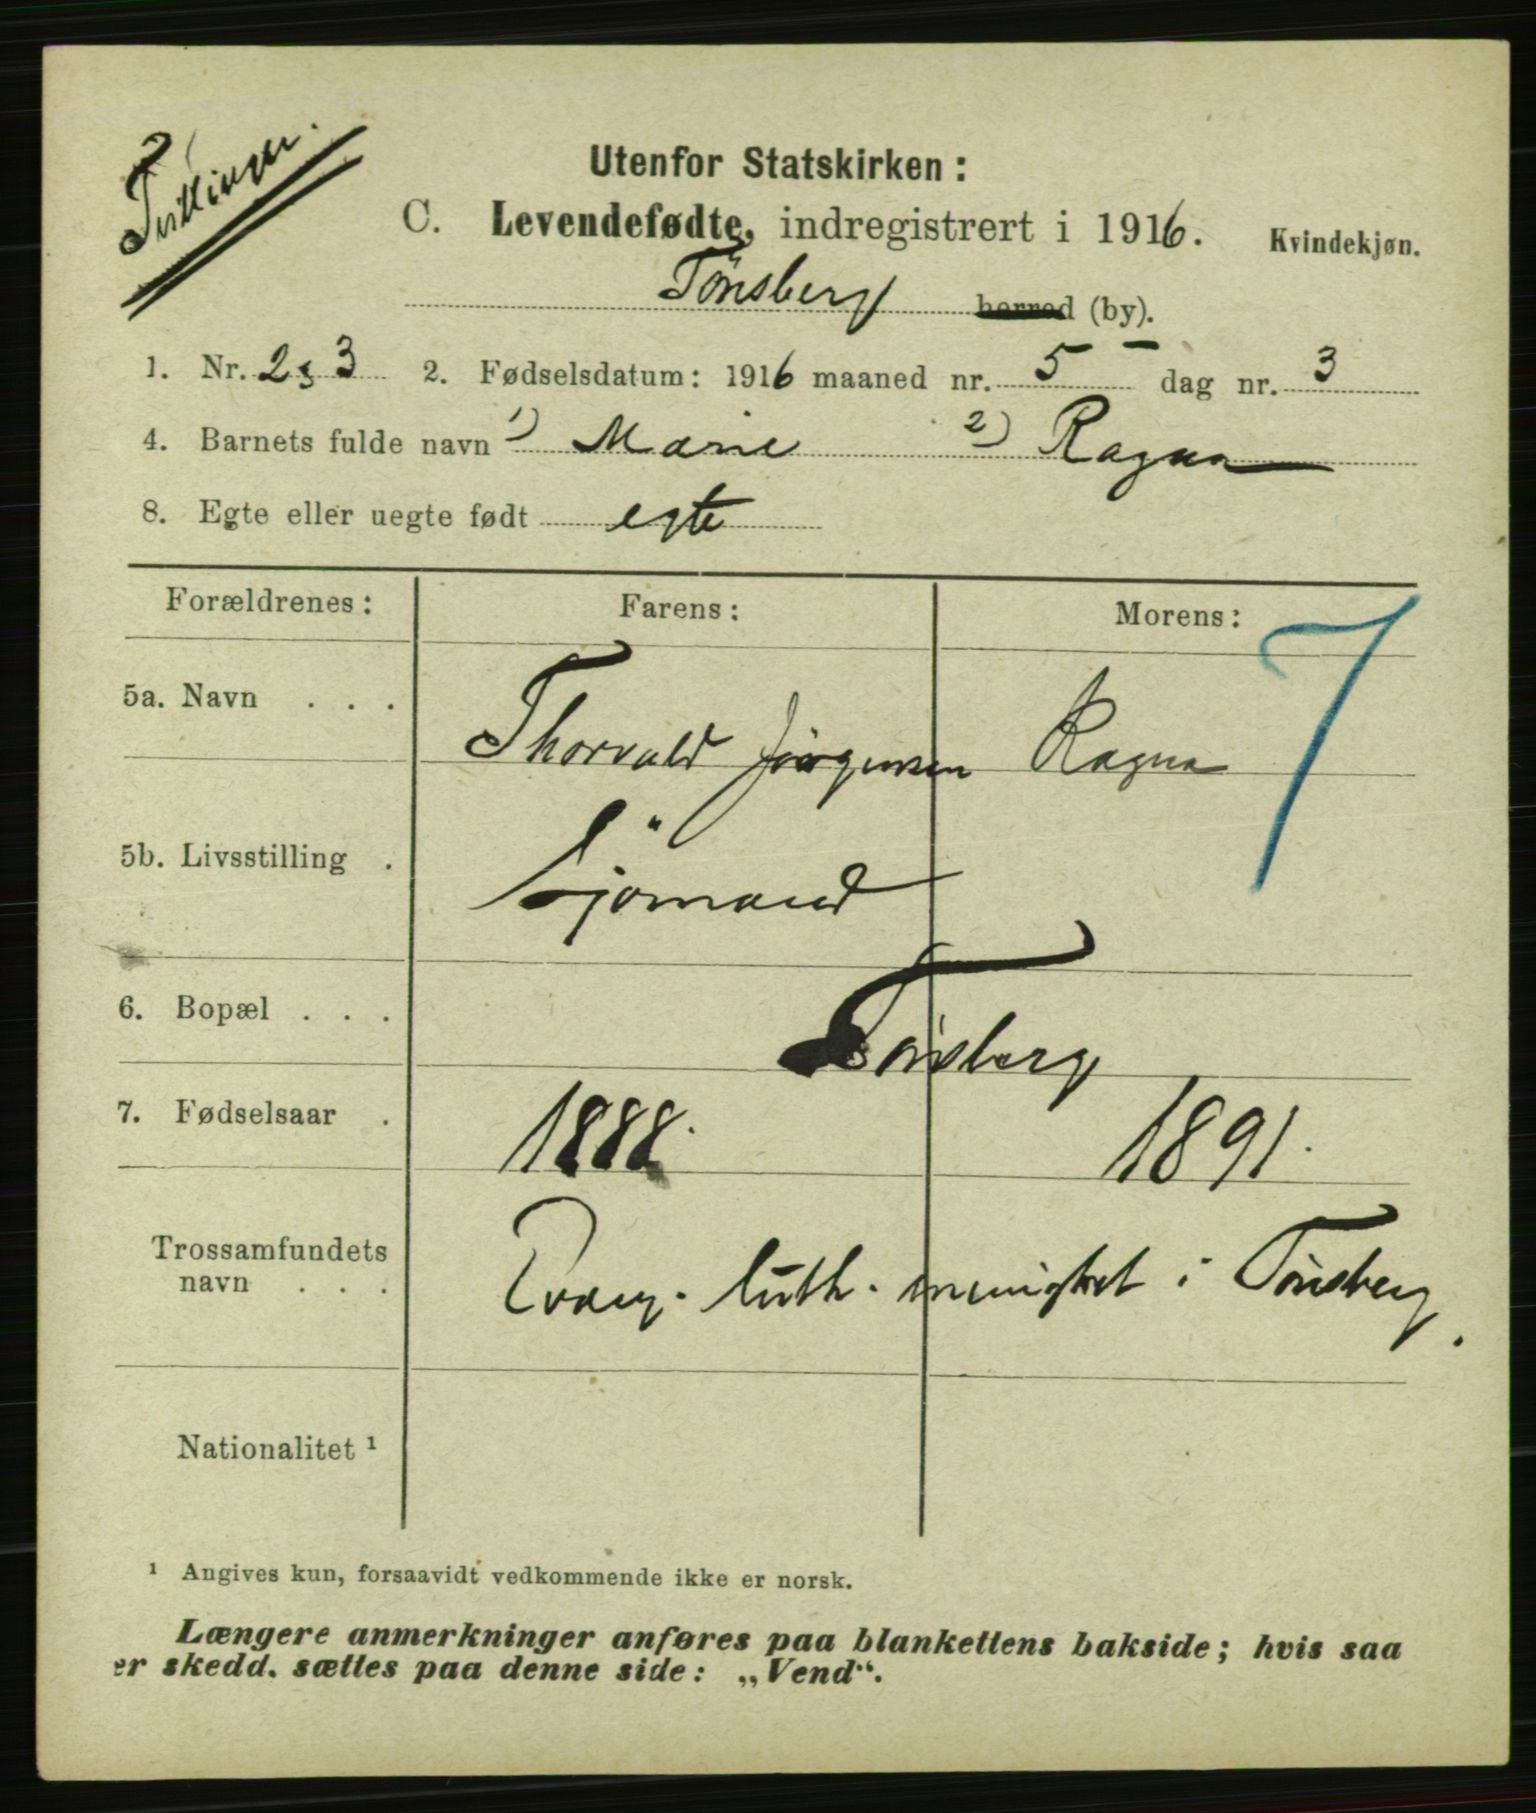 Tvillinger.
Utenfor Statskirken:
C. Levendefødte, indregistrert i 1916. Kvindekjøn.
Tønsberg herred (by).
1. Nr. 2 3 2. Fødselsdatum: 1916 maaned nr. 5 dag nr. 3
4. Barnets fulde navn 1) Marie 2) Ragna
8. Egte eller uegte født egte
Forældrenes: Farens: Morens: 7
5a. Navn . . . Thorvald Jörgensen Ragna
5b. Livsstilling . Sjömand
6. Bopæl . . . Tönsberg
7. Fødselsaar . 1888. 1891.
Trossamfundets
navn . . . Evang. luth. menighet i Tönsberg.
Nationalitet ¹
¹ Angives kun, forsaavidt vedkommende ikke er norsk.
Længere anmerkninger anføres paa blankettens bakside; hvis saa
er skedd, sættes paa denne side: „Vend“.